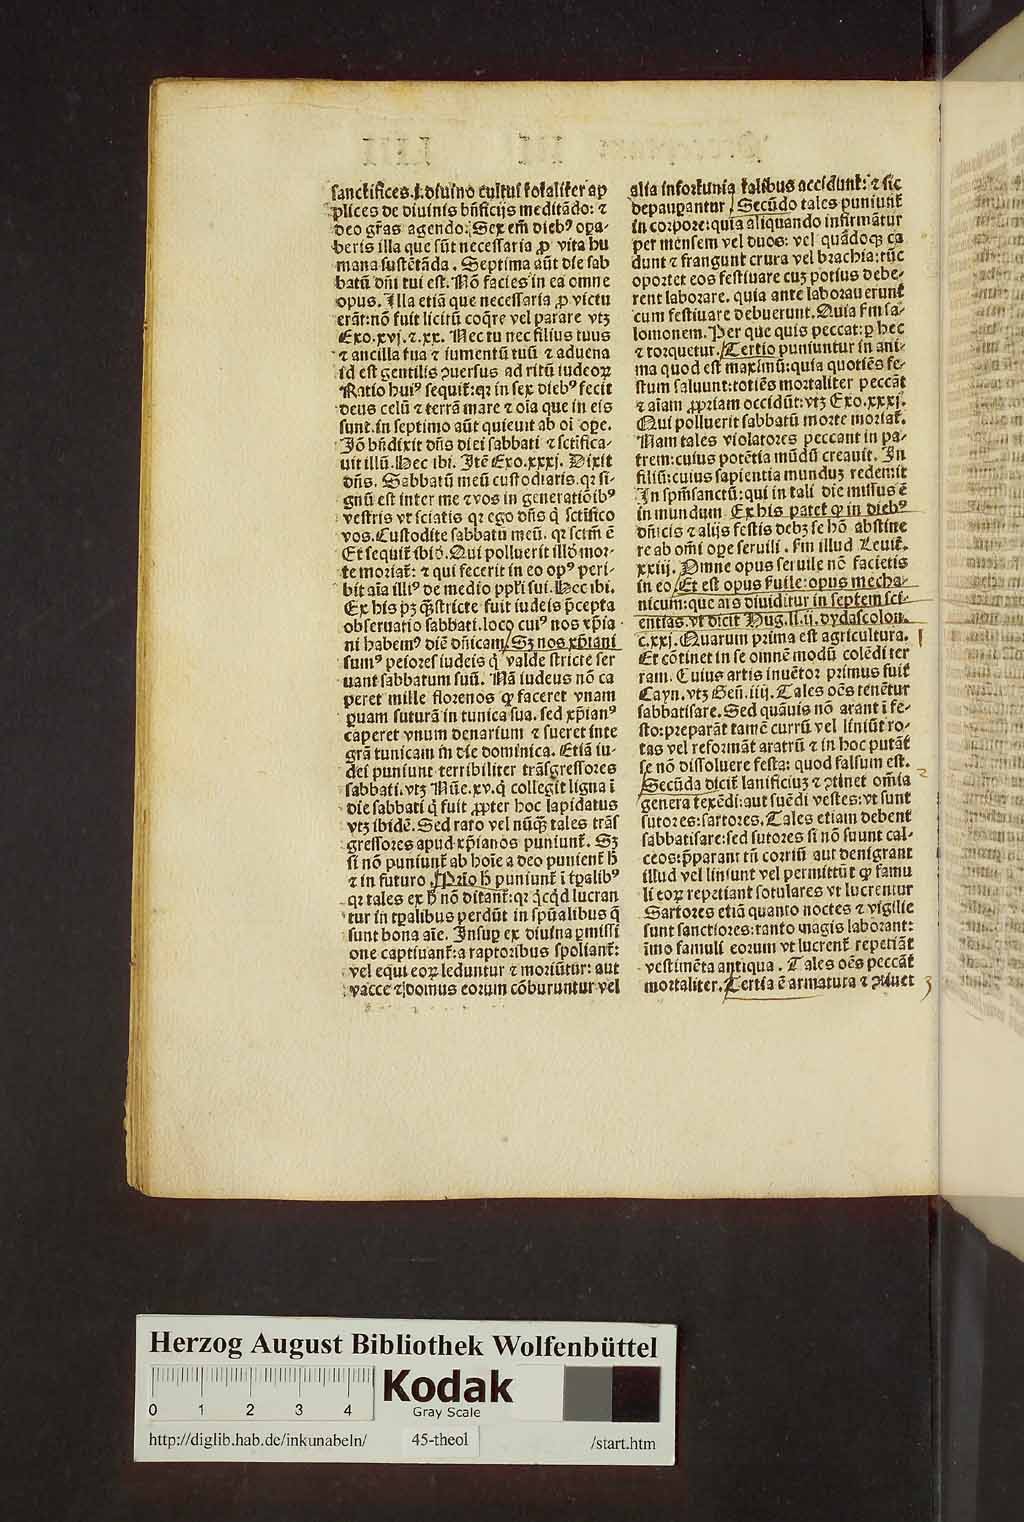 sanctifices.i.diuino cultui totaliter ap
plices de diuinis bn̄ficijs meditādo: ⁊
deo gr̄as agendo. Sex em̄ dieb⁹ oꝑa-
beris illa que sūt necessaria ꝓ vita hu
mana sustētāda. Septima aūt die sab
batū dn̄i tui est. Nō facies in ea omne
opus. Illa etiā que necessaria ꝓ victu
erāt: nō fuit licitū coq̄re vel parare vtꝫ
Exo.xvj.⁊.xx. Nec tu nec filius tuus
⁊ ancilla tua ⁊ iumentū tuū ⁊ aduena
id est gentilis ꝯuersus ad ritū iudeoꝝ
Ratio hui⁹ sequit᷑: qꝛ in sex dieb⁹ fecit
deus celū ⁊ terrā mare ⁊ oīa que in eis
sunt. in septimo aūt quieuit ab oī oꝑe.
Jō bn̄dixit dn̄s diei sabbati ⁊ sctīfica-
uit illū. Hec ibi. Itē Exo.xxxj. Dixit
dn̄s. Sabbatū meū custodiatis. qꝛ si-
gnū est inter me ⁊ vos in generatiōib⁹
vestris vt sciatis qꝛ ego dn̄s q̇ sctīfico
vos. Custodite sabbatū meū. qꝛ sctm̄ ē
Et sequit᷑ ibid. Qui polluerit illd mor-
te moriat᷑: ⁊ qui fecerit in eo op⁹ peri-
bit aīa illi⁹ de medio ppl̄i sui. Hec ibi.
Ex his pꝫ ꝙ stricte fuit iudeis p̄cepta
obseruatio sabbati. loco cui⁹ nos xp̄ia
ni habem⁹ diē dn̄icam. Sꝫ nos xp̄iani
sum⁹ peiores iudeis q̇ valde stricte ser
uant sabbatum suū. Nā iudeus nō ca
peret mille florenos ꝙ faceret vnam
paruam suturā in tunica sua. sed xp̄ian⁹
caperet vnum denarium ⁊ sueret inte
grā tunicam in die dominica. Etiā iu-
dei puniunt terribiliter trāsgressores
sabbati. vtꝫ Nūe.xv. q̇ collegit ligna ī
die sabbati q̇ fuit ꝓpter hoc lapidatus
vtꝫ ibidē. Sed raro vel nūqꝫ tales trās
gressores apud xp̄ianos puniunt᷑. Sꝫ
si nō puniunt᷑ ab hoīe a deo punient᷑ hꝰ
⁊ in futuro. Prīo hꝰ puniunt᷑ ī tꝑalib⁹
qꝛ tales ex hꝰ nō ditant᷑: qꝛ q̇cq̇d lucran
tur in tꝑalibus perdūt in spūalibus q̄
sunt bona aīe. Insuꝑ ex diuina ꝑmissi
one captiuant᷑: a raptoribus spoliant᷑:
vel equi eoꝝ leduntur ⁊ moriūtur: aut
vacce ⁊ domus eorum cōburuntur vel
alia infortunia talibus accidunt᷑: ⁊ sic
depauꝑantur. Secūdo tales puniunt᷑
in corpore: quia aliquando infirmātur
per mensem vel duos: vel quādoqꝫ ca
dunt ⁊ frangunt crura vel brachia: tūc
oportet eos festiuare cuꝫ potius debe-
rent laborare. quia ante laborauerunt
cum festiuare debuerunt. Quia fm sa-
lomonem. Per que quis peccat: ꝑ hec
⁊ torquetur. Tertio puniuntur in ani-
ma quod est maximū: quia quotiēs fe-
stum saluunt: totiēs mortaliter peccāt
⁊ aīam ꝓpriam occidūt: vtꝫ Exo.xxxj.
Qui polluerit sabbatū morte moriat᷑.
Nam tales violatores peccant in pa-
trem: cuius potētia mūdū creauit. In
filiū: cuius sapientia munduꝫ redemit
In spm̄sanctū: qui in tali die missus ē
in mundum Ex his patet ꝙ in dieb⁹
dn̄icis ⁊ alijs festis debꝫ se hō abstine
re ab om̄i oꝑe seruili. fm illud Leuit᷑.
xxiij. Omne opus seruile nō facietis
in eo. Et est opus ẜuile: opus mecha-
nicum: que ars diuiditur in septem sci-
entias. vt dicit Hug.li.ij. dydascolon.
c.xxj. Quarum prima est agricultura.
Et cōtinet in se omnē modū colēdi ter
ram. Cuius artis inuētor primus fuit
Cayn. vtꝫ Gen̄.iiij. Tales oēs tenētur
sabbatisare. Sed quāuis nō arant ī fe-
sto: preparāt tamē currū vel liniūt ro-
tas vel reformāt aratrū ⁊ in hoc putāt
se nō dissoluere festa: quod falsum est.
Secūda dicit᷑ lanificiuꝫ ⁊ ꝯtinet om̄ia
genera texēdi: aut suēdi vestes: vt sunt
sutores: sartores. Tales etiam debent
sabbatisare: sed sutores si nō suunt cal-
ceos: p̄parant tn̄ corriū aut denigrant
illud vel linsunt vel permittūt ꝙ famu
li eoꝝ repetiant sotulares vt lucrentur
Sartores etiā quanto noctes ⁊ vigilie
sunt sanctiores: tanto magis laborant:
īmo famuli eorum vt lucrent᷑ repetiāt
vestimēta antiqua. Tales oēs peccāt
mortaliter. Tertia ē armatura ⁊ ꝯtinet
Herzog August Bibliothek Wolfenbüttel
0 1 2 3 4
Kodak
Gray Scale
http://diglib.hab.de/inkunabeln/ 45-theol /start.htm